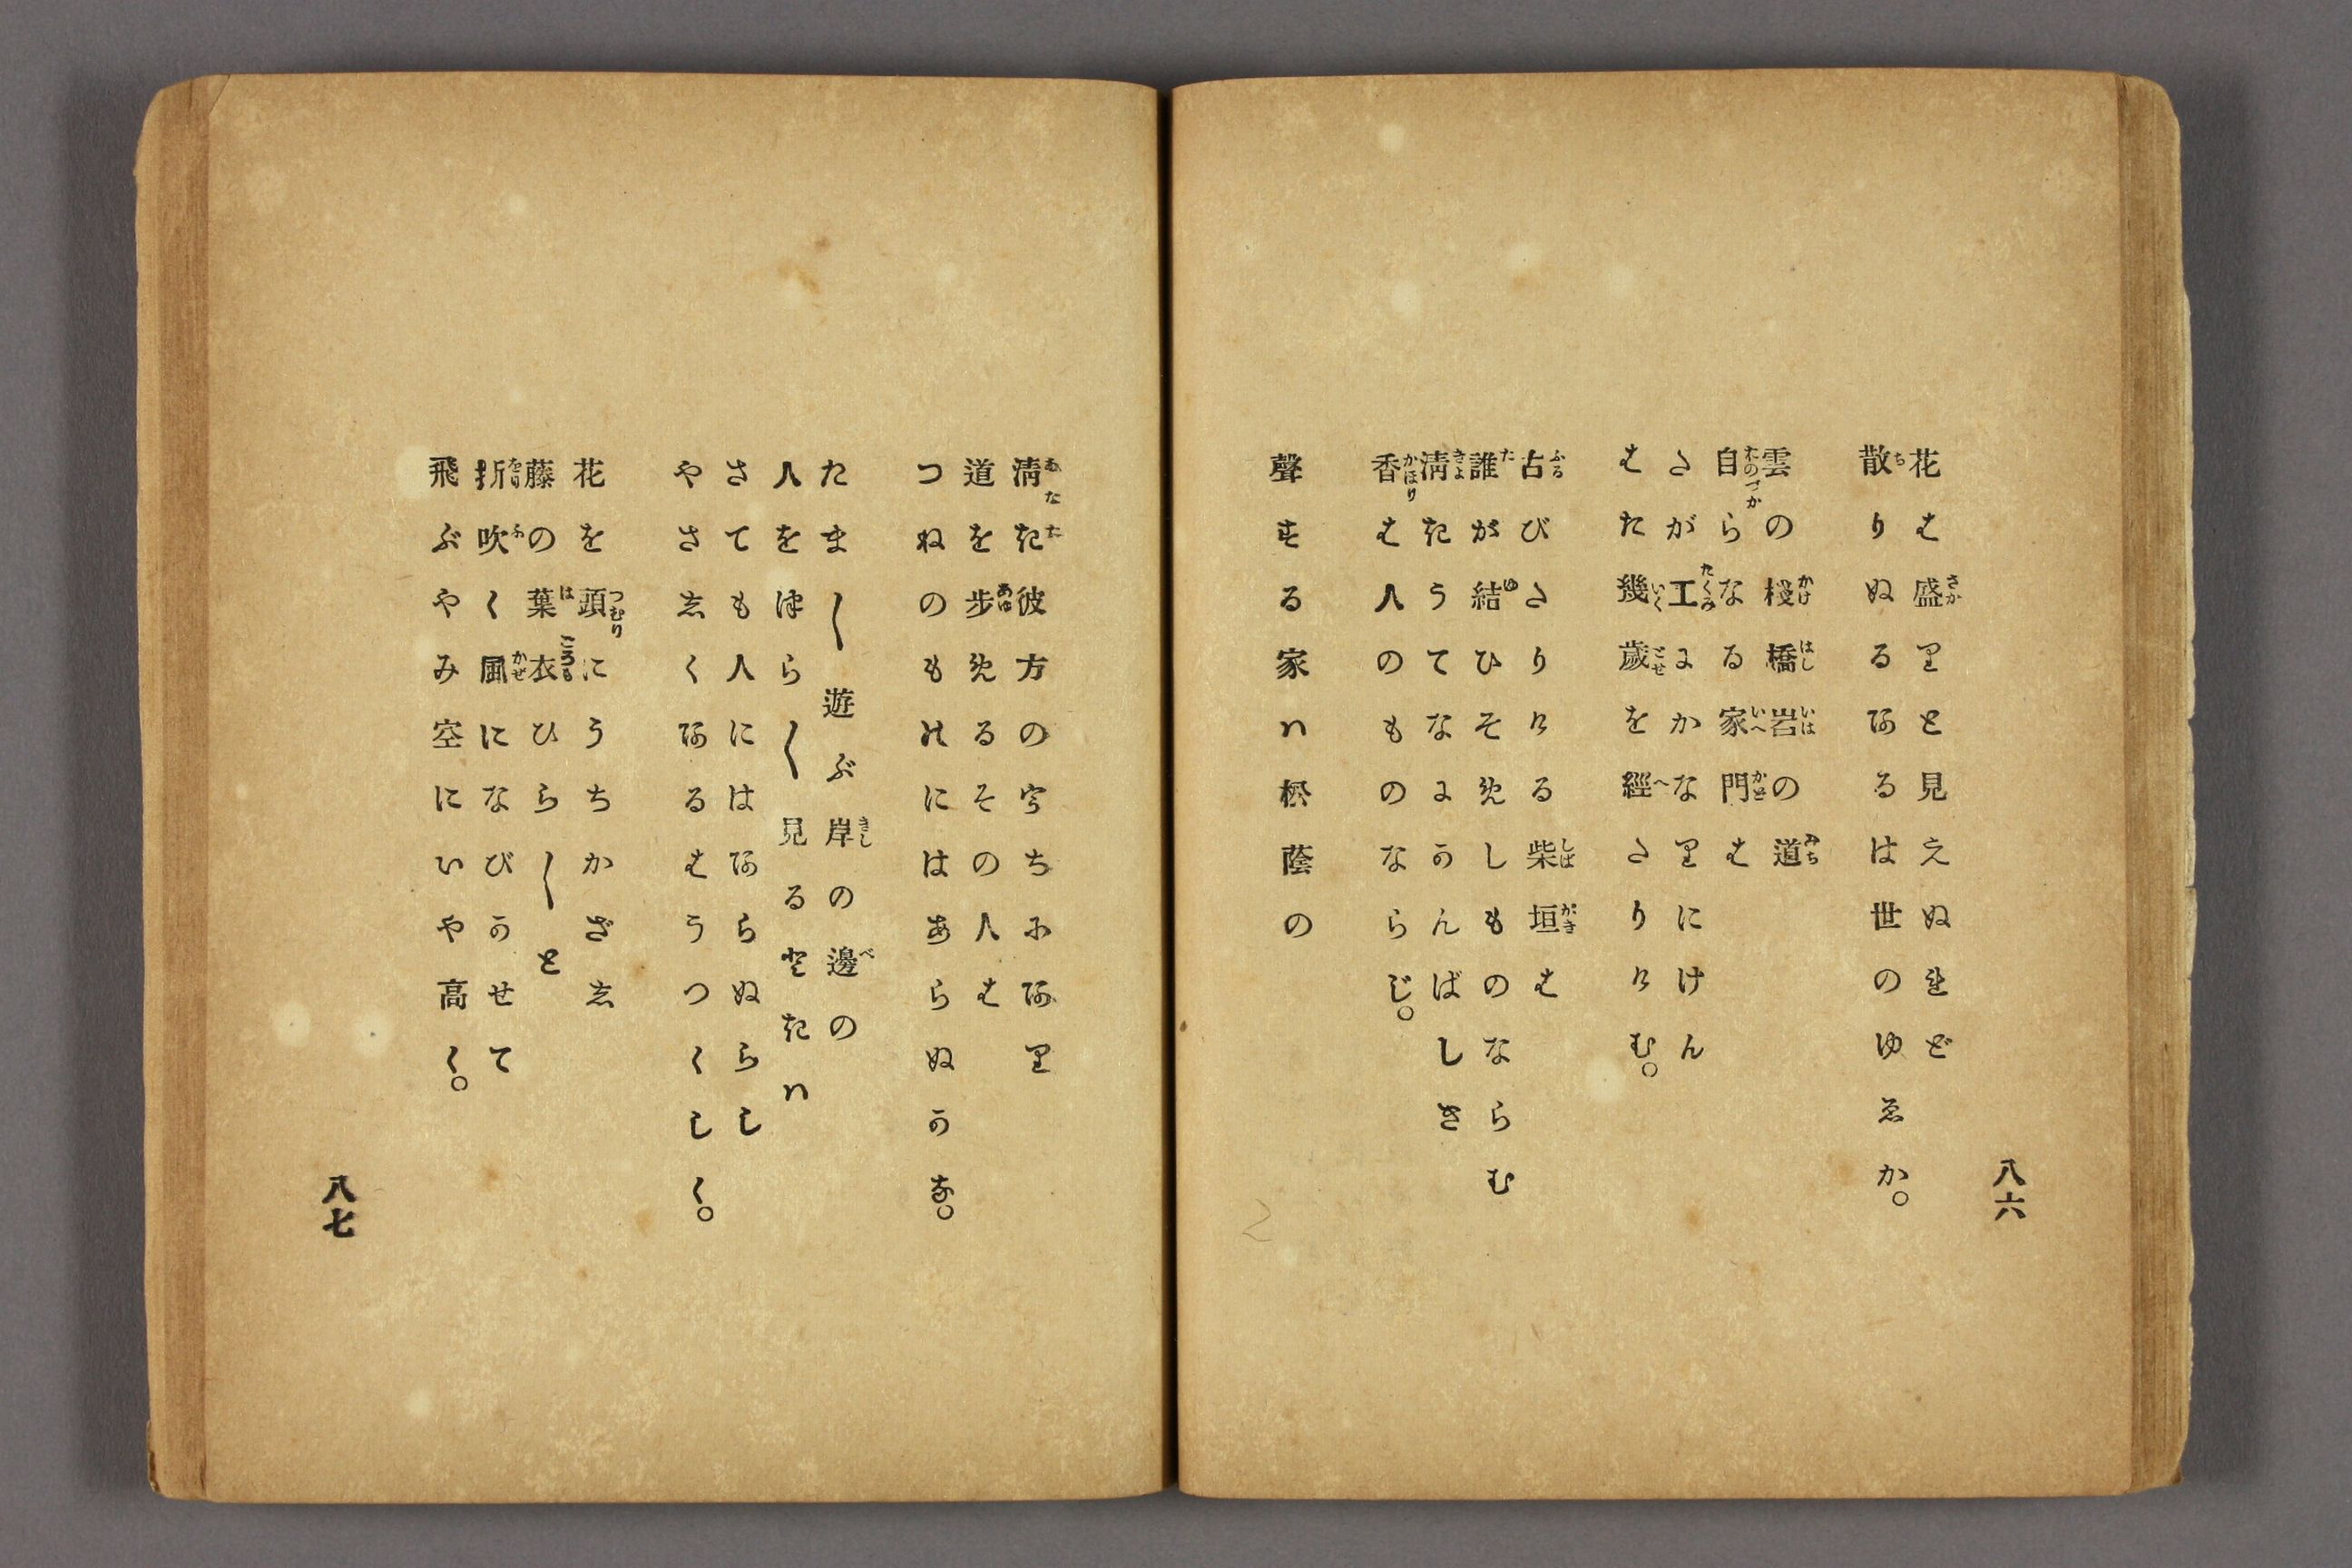 八六
花は盛りと見えぬれど
散りぬるあるは世のゆゑか。
雲の棧橋岩の道
自らなる家門は
たが工にかなりにけん
はた幾歳を經たりけむ。
古びたりける柴垣は
誰が結ひそめしものならむ
清きうてなにかんばしき
香は人のものならじ。
聲する家は松蔭の
清き彼方のうちにあり
道を歩めるその人は
つねのものにはあらぬかな。
たま〳〵遊ぶ岸の邊の
人をつら〳〵見るときは
さても人にはあらぬらし
やさしくあるはうつくしく。
花を頭にうちかざし
藤の葉衣ひら〳〵と
折吹く風になびかせて
飛ぶやみ空にいや高く。
八七